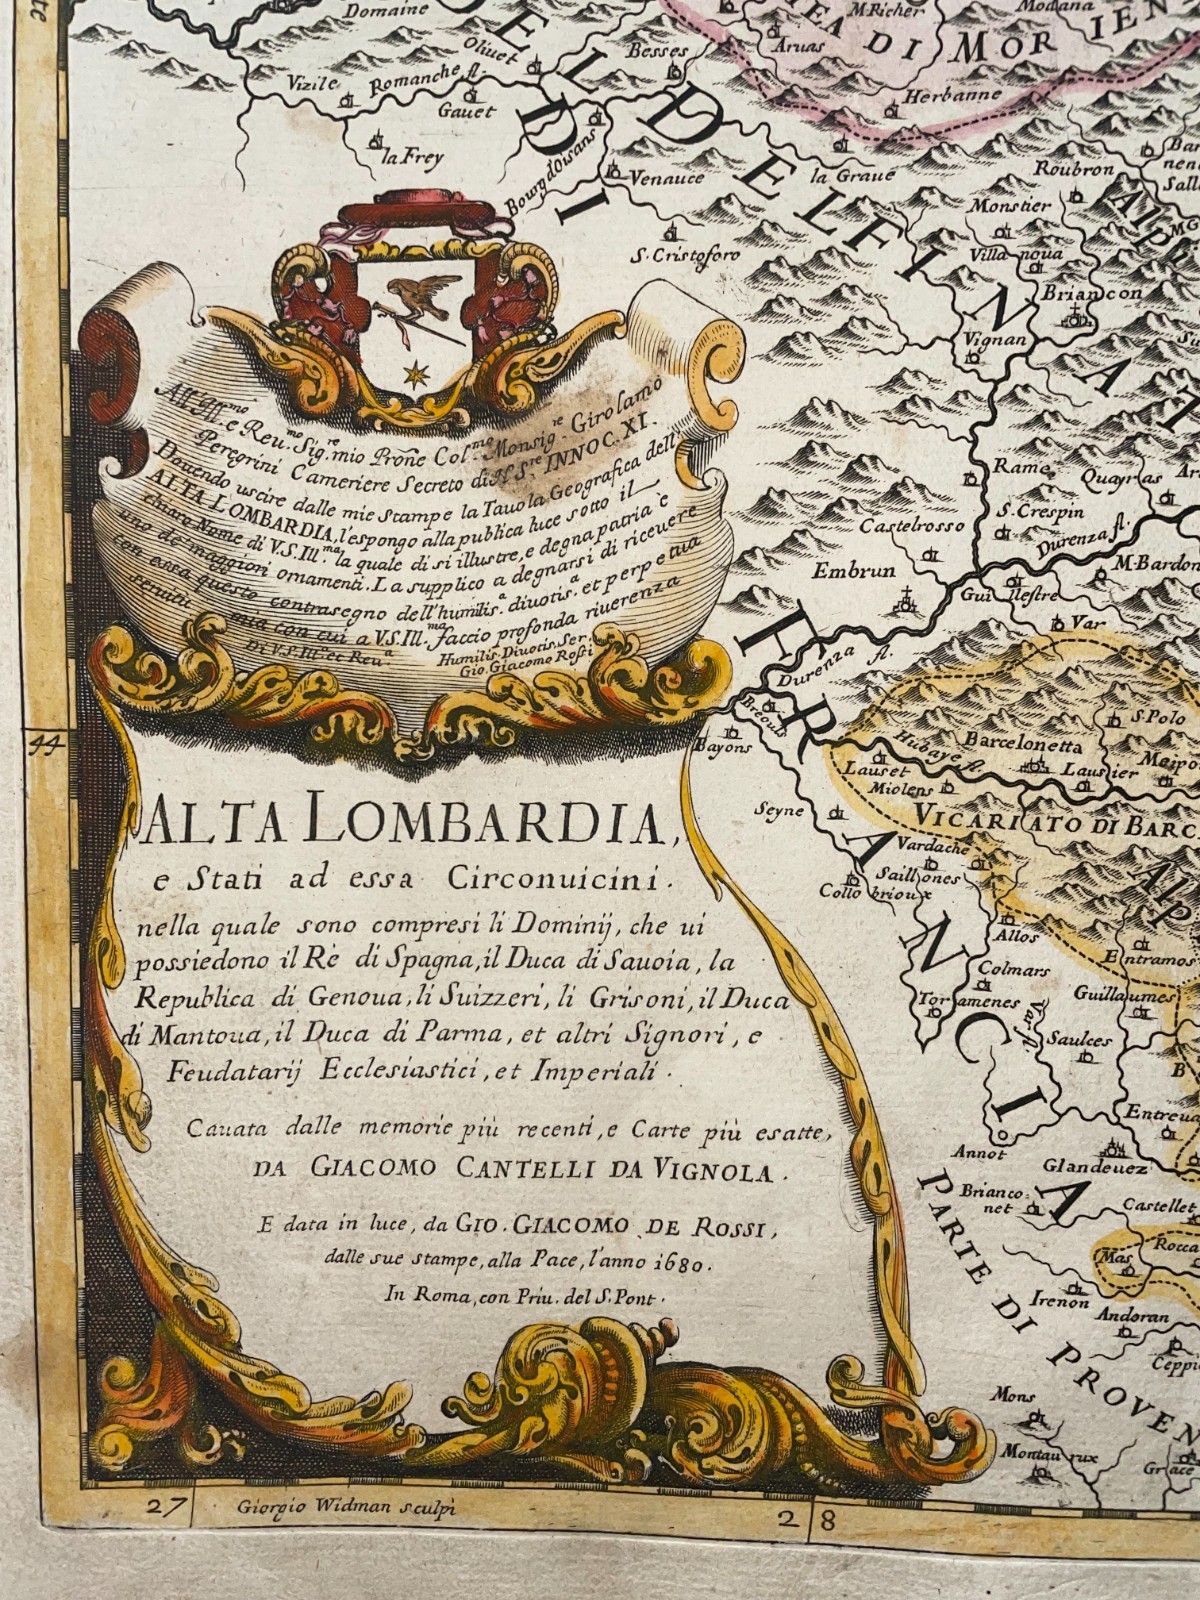 Domaine
M.Richer
Modana
Oliuet
Besses
Aruas
EA DI MORIEN
Vizile
Romanche fl.
Gauet
Herbanne
DEL DI
DELFINA
la Frey
Bourg d'Oisans
Venauce
la Graue
Roubron
Monstier
S. Cristoforo
Villa noua
Briancon
Vignan
All' Ill.mo e Reu.mo Sig.re mio Prōne Col.mo Monsig.re Girolamo
Peregrini Cameriere Secreto di N. S.re INNOC. XI.
Douendo uscire dalle mie stampe la Tauola Geografica dell'
ALTA LOMBARDIA, l'espongo alla publica luce sotto il
chiaro Nome di V.S.Ill.ma la quale di si illustre, e degna patria è
uno de maggiori ornamenti. La supplico a degnarsi di riceuere
con essa questo contrasegno dell'humilis.a diuotis.a et perpetua
seruitù mia con cui a V.S.Ill.ma faccio profonda riuerenza
Di V.S.Ill.ma et Reu.a
Humilis. Diuotis. Ser.
Gio. Giacomo Rossi
Rame
Quayras
S. Crespin
Castelrosso
Durenza fl.
Embrun
M. Bardon
Gui llestre
Var
FRANCIA
Durenza fl.
Breoul
Bayons
S. Polo
Hubaye fl.
Barcelonetta
Lauset
Lausier
Meipo
Miolens
44
Seyne
VICARIATO DI BARC
Vardache
Saillones
Collo brioux
Alp
Allos
Entramos
Colmars
Toramenes
Guillaumes
Var fl.
Saulces
ALTA LOMBARDIA,
e Stati ad essa Circonuicini.
nella quale sono compresi li Dominij, che ui
possiedono il Rè di Spagna, il Duca di Sauoia, la
Republica di Genoua, li Suizzeri, li Grisoni, il Duca
di Mantoua, il Duca di Parma, et altri Signori, e
Feudatarij Ecclesiastici, et Imperiali.
Cauata dalle memorie più recenti, e Carte più esatte,
DA GIACOMO CANTELLI DA VIGNOLA.
E data in luce, da GIO. GIACOMO DE ROSSI,
dalle sue stampe, alla Pace, l'anno 1680.
In Roma, con Priu. del S. Pont.
Entreua
Annot
Glandeuez
Brianco-
net
Castellet
PARTE DI PROVEN
Mas
Rocca
Irenon
Andoran
Ceppi
Mons
Montauroux
Grace
27
Giorgio Widman sculpi
28